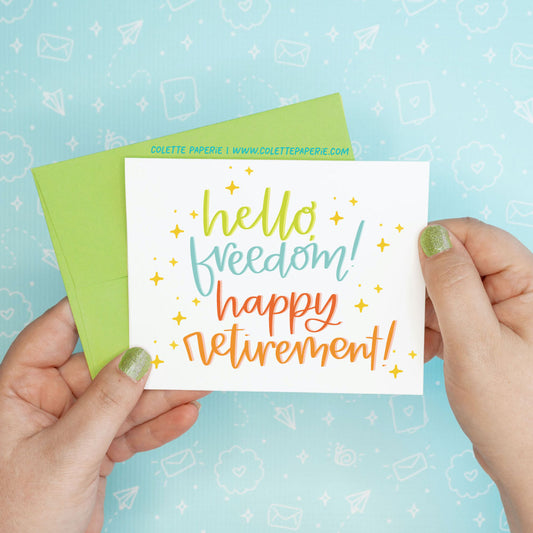 COLETTE PAPERIE | WWW.COLETTEPAPERIE.COM
hello,
freedom!
happy
retirement!